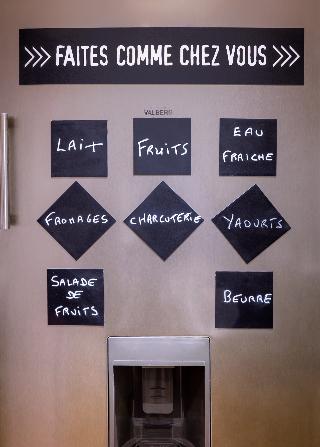 >>> FAITES COMME CHEZ VOUS >>>
VALBERG
LAit
FRUITS
EAU
FRAICHE
FROMAGES
CHARCUTERIE
YAOURTS
SALADE
DE
FRUITS
BEURRE